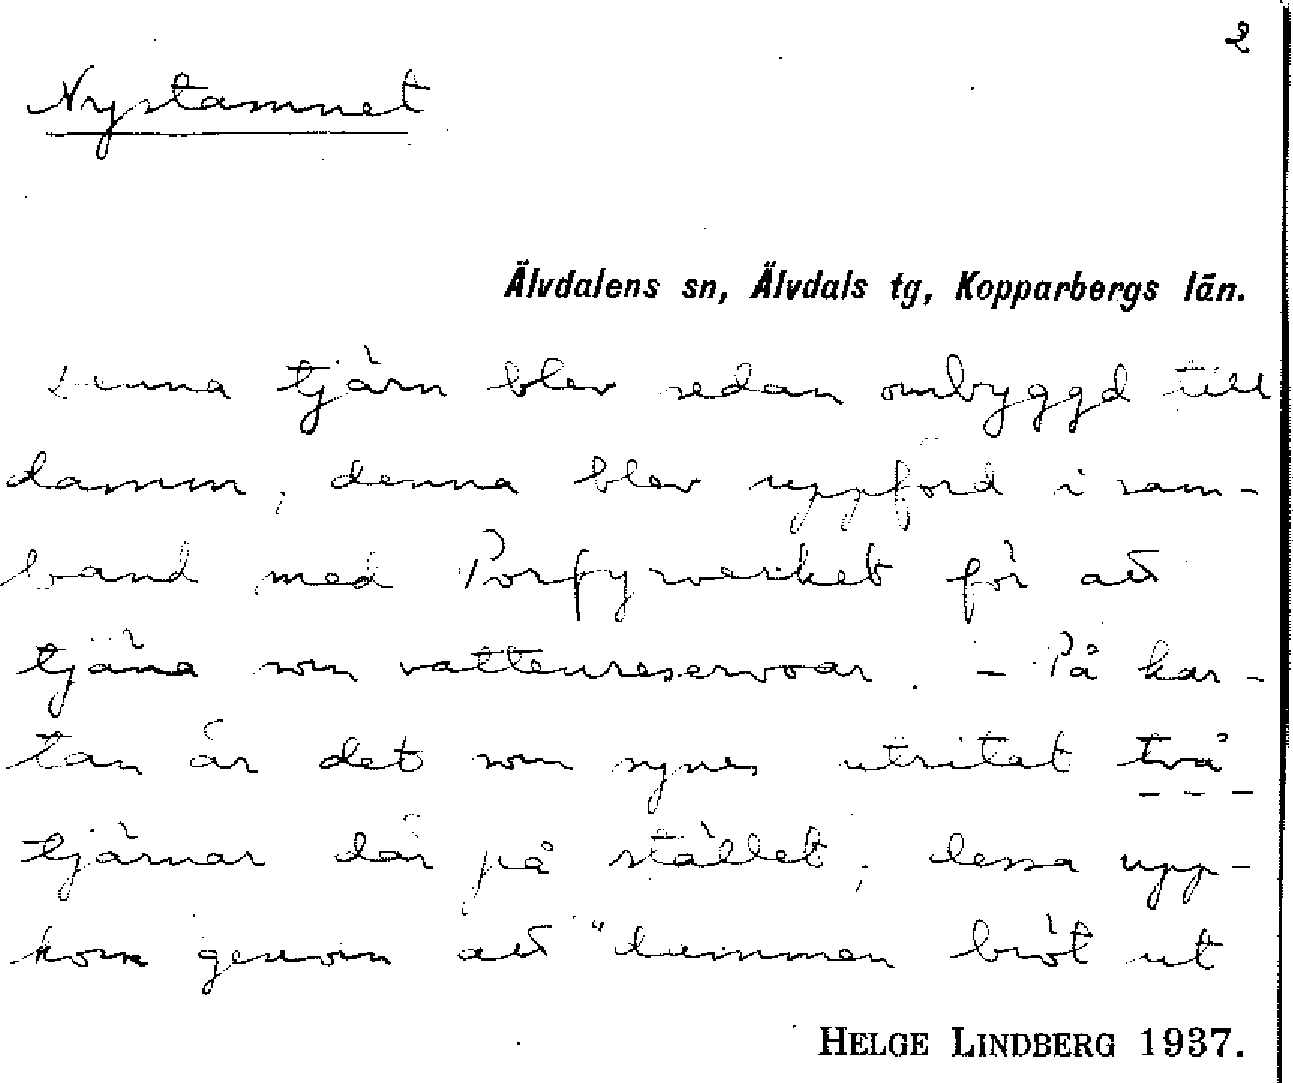 2
Nystamnet
Älvdalens sn, Älvdals tg, Kopparbergs län.
denna tjärn blev sedan ombyggd till
damm, denna blev uppförd i sam-
band med Porfyrverket för att
tjäna som vattenreservoar. - På kar-
tan är det som synes utritat två
tjärnar där på stället, dessa upp-
kom genom att "dammen bröt ut
HELGE LINDBERG 1937.